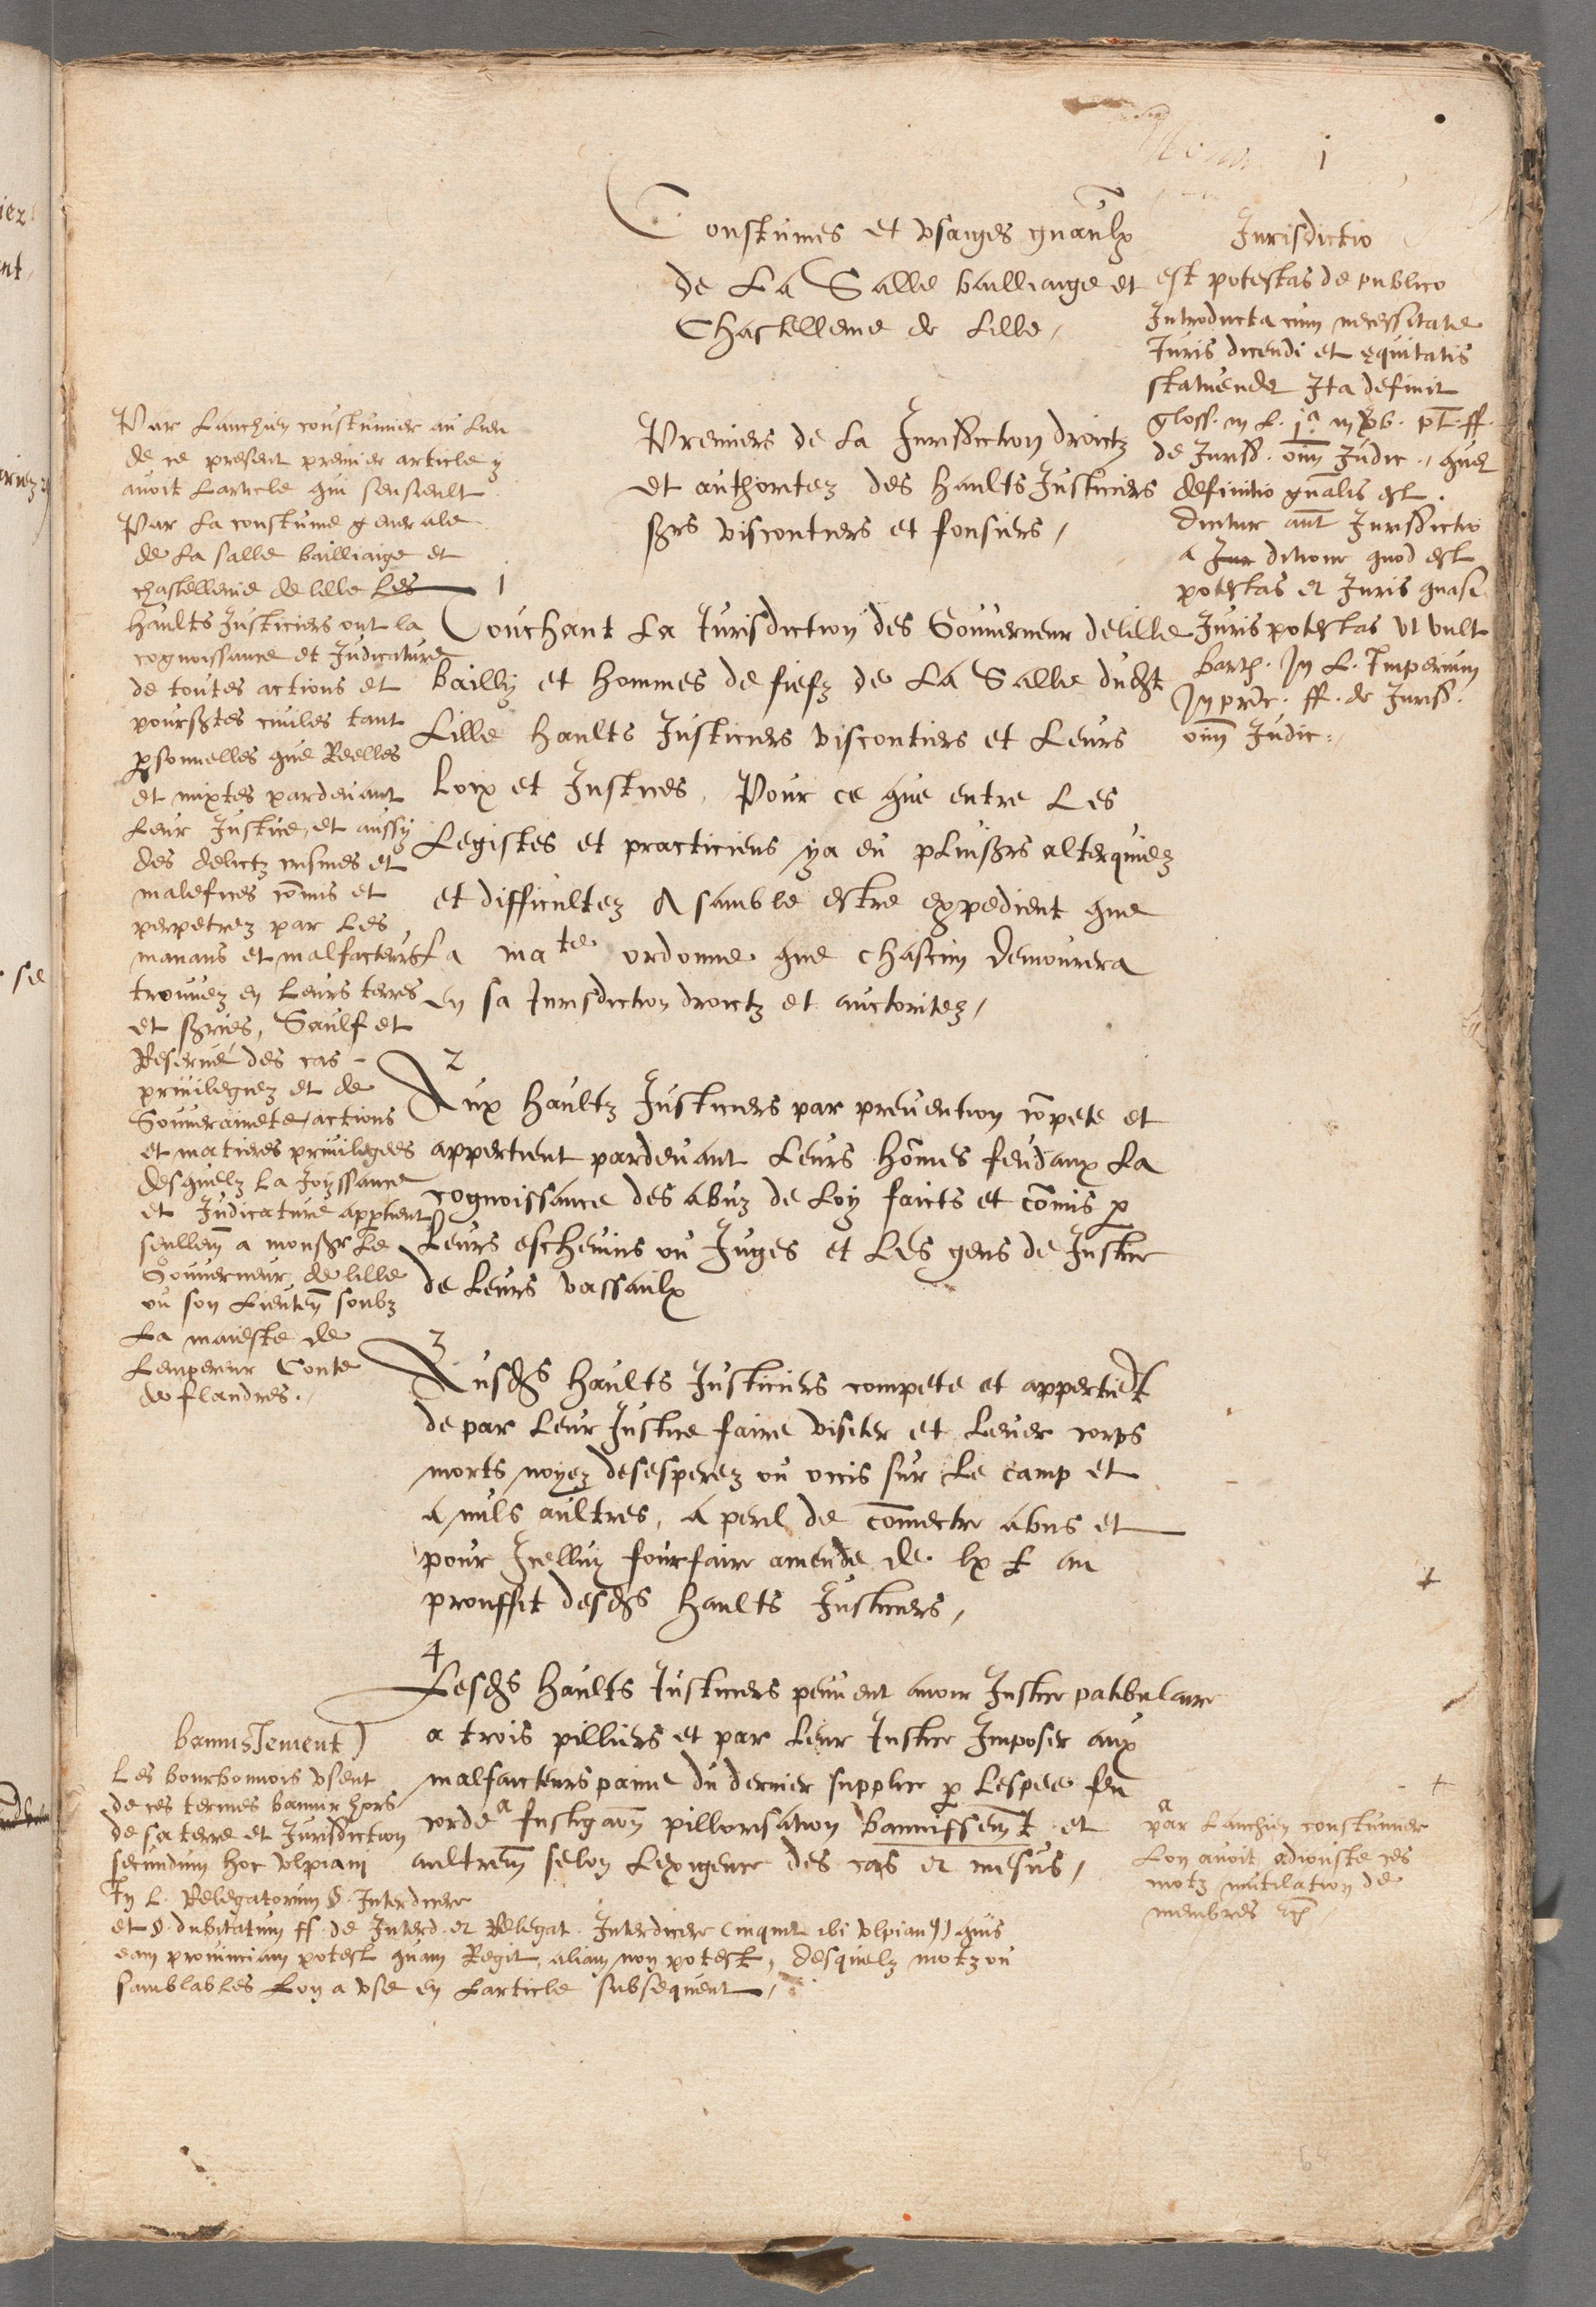 i
Coustumes et usaiges gnaulx
de La Salle bailliaige et
Chastellenie de Lille,
Jurisdictio
est potestas de publico
Introducta cum necessitate
Juris dicendi et equitatis
statuendę Ita definit
gloss. in L. j.a in
de Jurisd. oim Judic., que
definitio gnalis est.
dicitur aut Jurisdictio
a Jur ditione quod est
potestas et Juris quasi
Juris potestas ut vult
barth. In L. Imperium
In princ. ff. de Jurisd.
oim Judic.
Premiers de La Jurisdiction droictz
et authoritez des haults Justiciers
sgrs viscontiers et fonsiers,
Par Lanchien coustumier au Lieu
de ce present premier article y
avoit Larticle qui sensieult
Par La coustume generale
de La salle bailliaige et
chastellenie de lille Les
haults Justiciers ont la
cognoissance et Judicature
de toutes actions et
poursgtes civiles tant
psonnelles que Reelles
et mixtes pardevant
Leur Justice, et aussy
des delictz crismes et
malefices comis et
perpetrez par Les
manans et malfacteurs
trouvez en Leurs terres
et sgries, Saulf et
Reservé des cas
privilegiez et de
Souverainete, actions
et matieres privilegees
desquelz La Joyssance
et Judicature apptient
seullem a monsgr Le
Gouverneur de lille
ou son Lieuten soubz
La maieste de
Lempereur Conte
de flandres.
1
Touchant La Jurisdiction des Gouverneur de lille
bailly et hommes de fiefz de La Salle dudit
Lille haults Justiciers viscontiers et Leurs
Loix et Justices, Pour ce que entre Les
Legistes et practiciens ya eu pluisrs alterquiez
et difficultez A samble estre expedient que
La mate ordonne que chascun demourera
en sa Jurisdiction droictz et auctoritez,
2
Aux haultz Justiciers par prevention compete et
appertient pardevant Leurs homes feudaux La
cognoissance des abuz de Loy faicts et comis p
Leurs eschevins ou Juges et Les gens de Justice
de Leurs vassaulx
3
Ausds haults Justiciers compete et appertient
de par Leur Justice faire visiter et Lever corps
morts noyez desesperez ou occis sur Le camp et
a nuls aultres, a peril de comectre abus et
pour Icelluy fourfaire amende de lx £ au
prouffit desds haults Justiciers,
4
Lesds haults Justiciers peuvent avoir Justice patibulaire
a trois pilliers et par Leur Justice Imposer aux
malfaicteurs paine du dernier supplice p Lespee feu
corde a fustigaon pillorisation bannissemt et
aultrem selon Lexigence des cas et mesus,
bannissement)
Les bourbonnois usent
de ces termes bannir hors
de sa terre et Jurisdiction
secundum hoc ulpiani
In L. Relegatorum §. Interdicere
et §. dubitatum ff. de Interd. et Relegat. Interdicere (inquit ibi Ulpian9) quis
eam provinciam potest quam Regit, aliam non potest, desquelz motz ou
samblables Lon a use en Larticle subsequent,
a
par Lanchien coustumier
Lon avoit adiouste ces
motz mutilation de
membres etc